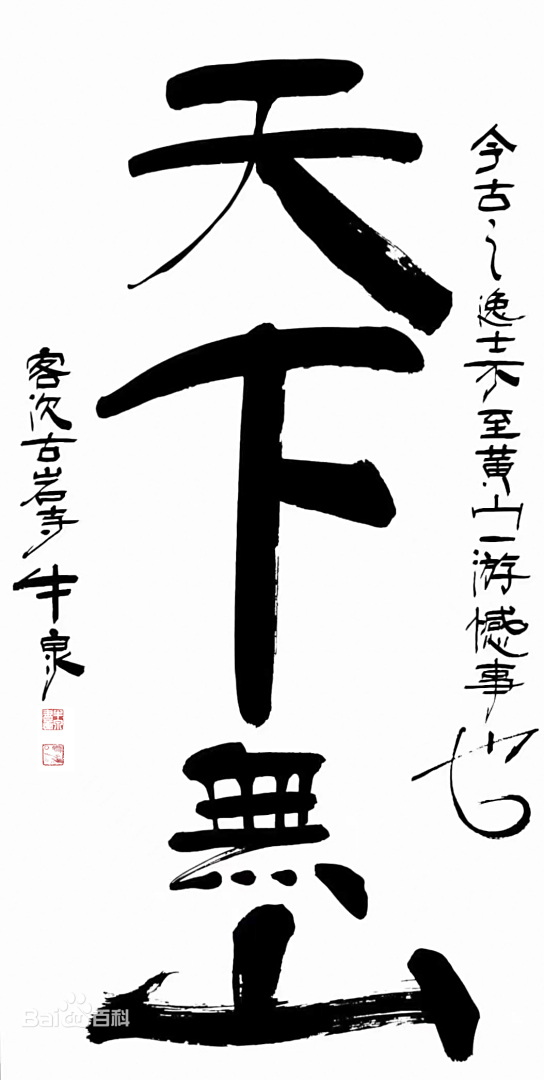 天下無山
今古之逸士不至黄山一游憾事也
客次古岩寺牛泉
Baidu百科